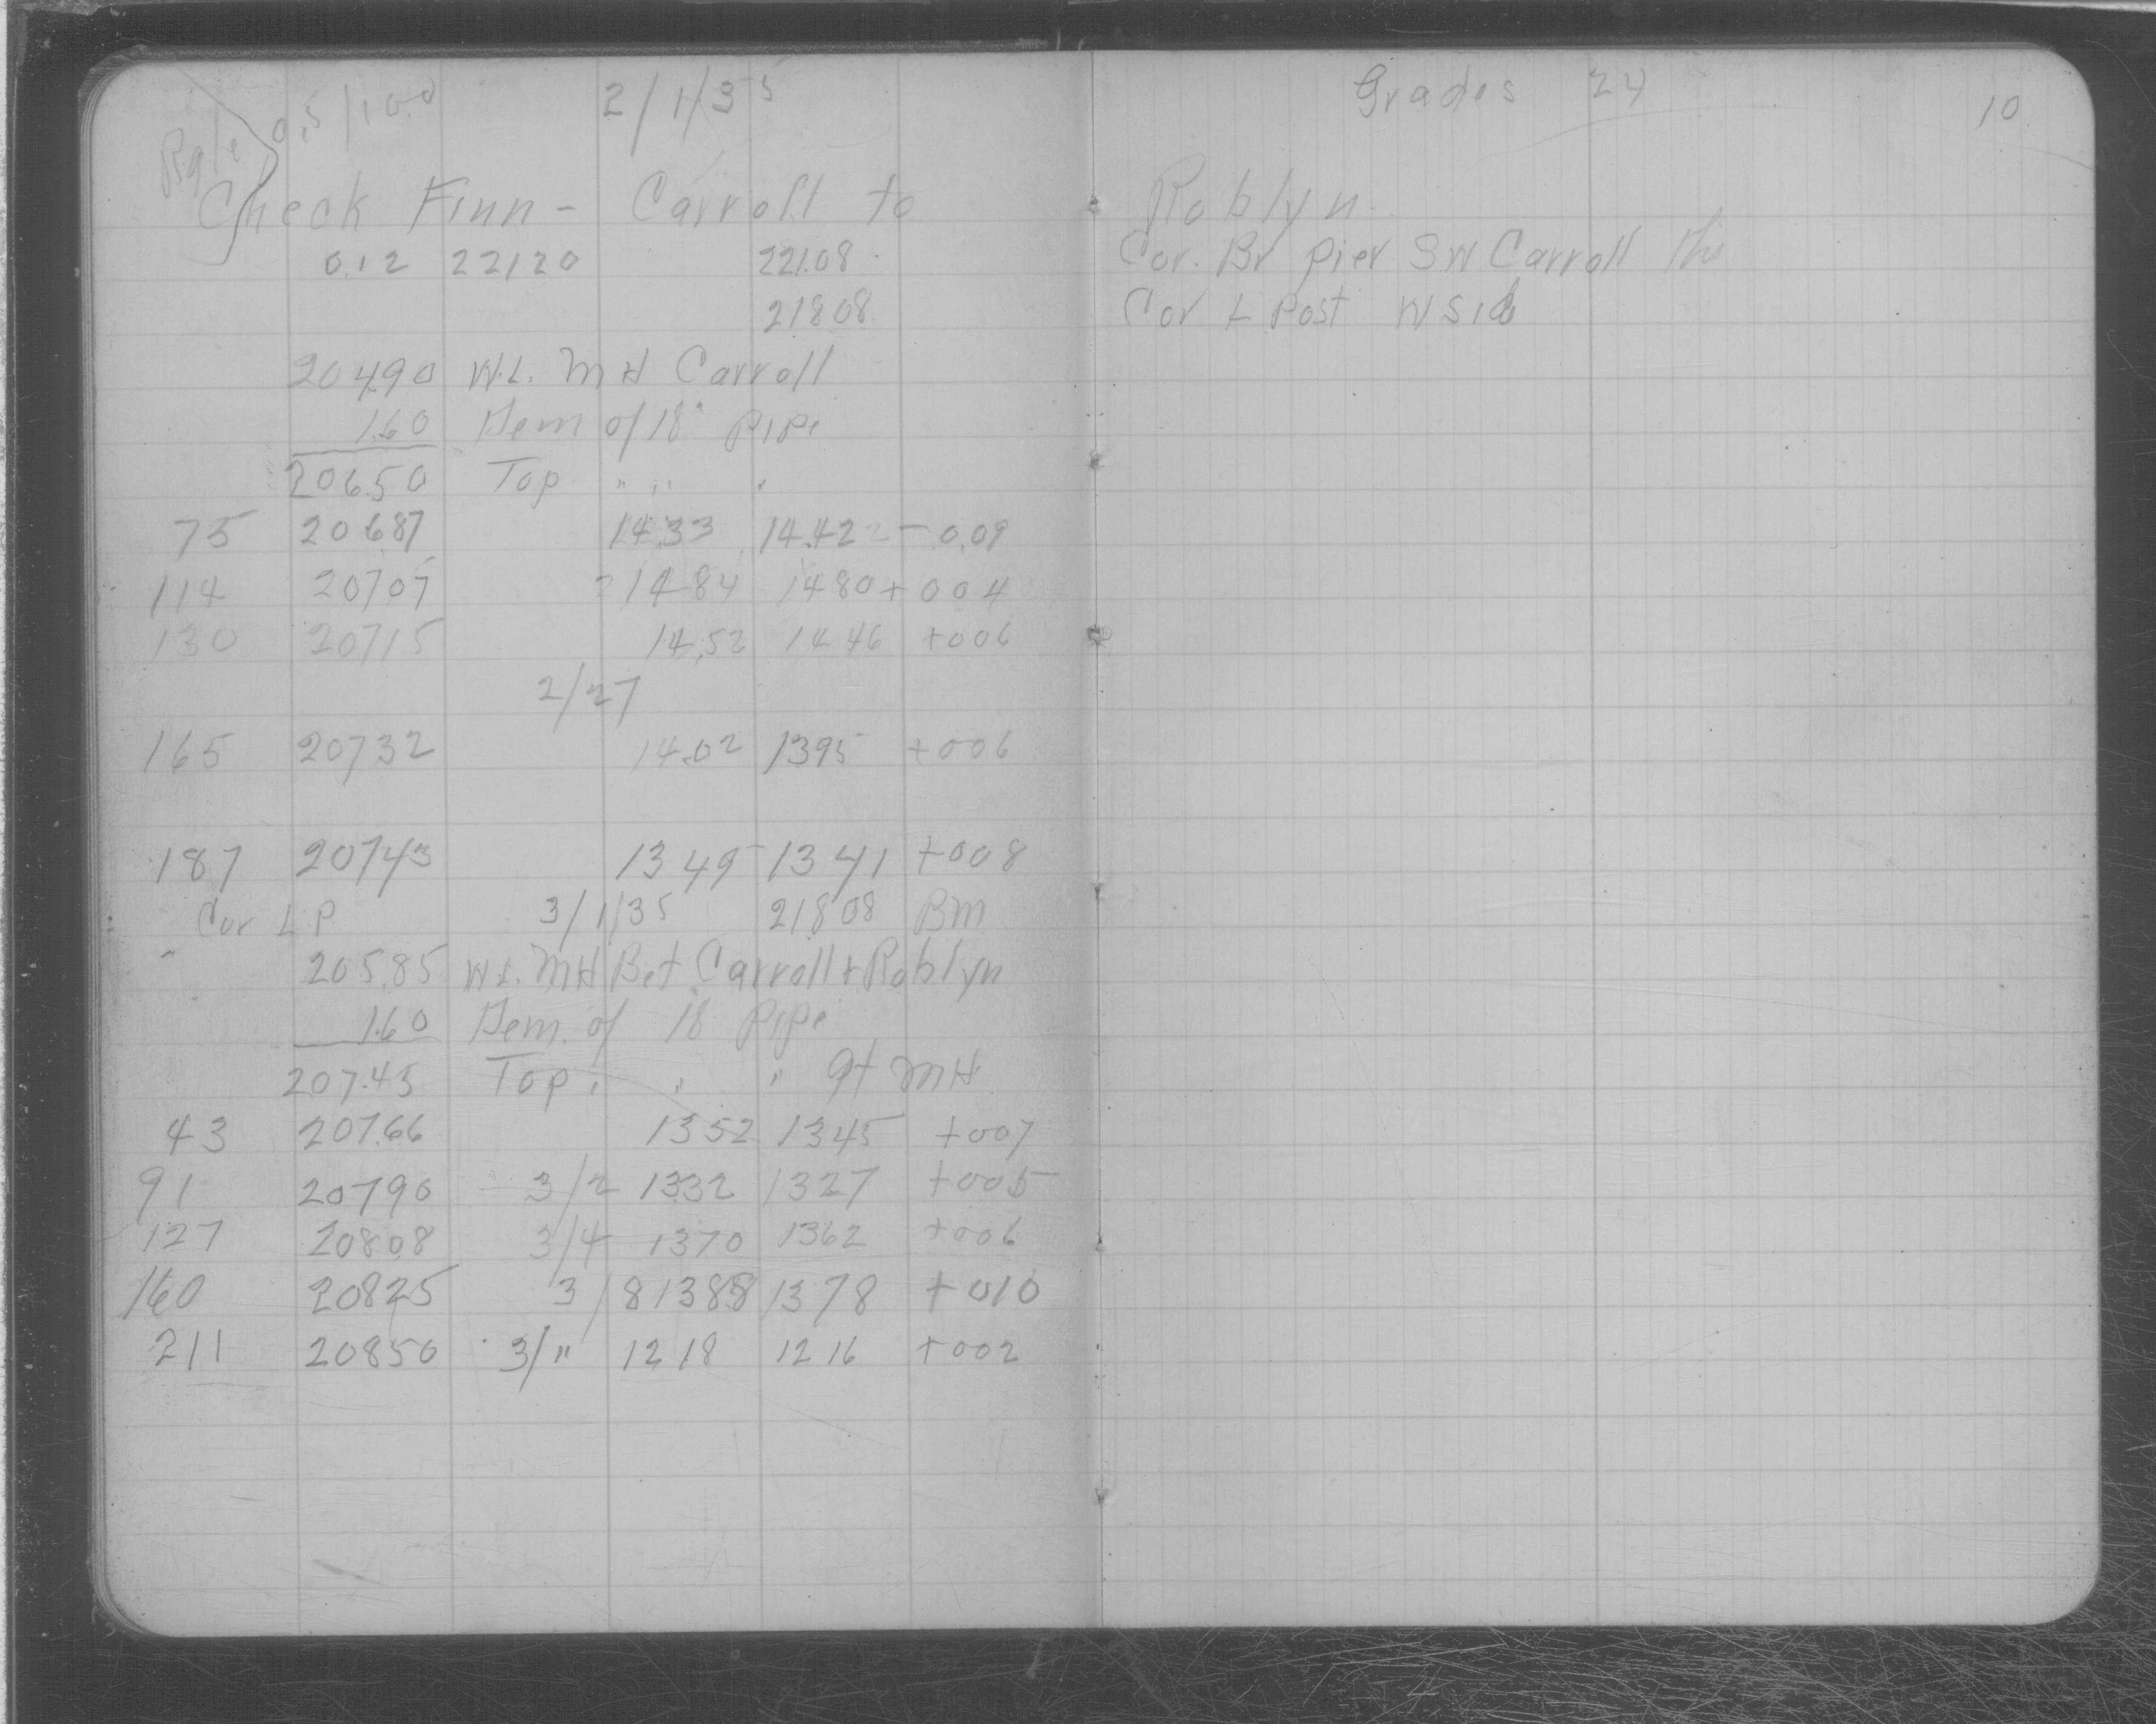 0.5/100
2/1/35
Check Finn - Carroll to
0.12 22120 221.08
218.08
204.90 W.L. MH Carroll
1.60 Dem of 18" Pipe
206.50 Top " " "
75 20687 14.33 14.42 - 0.09
114 20707 1484 1480 + 004
130 20715 14.52 1446 +006
2/27
165 20732 14.02 1395 +006
187 20743 1349 1341 +008
Cor L P 3/1/35 21808 BM
205.85 W.L. MH Bet Carroll & Roblyn
1.60 Dem. of 18 Pipe
207.45 Top " " " at MH
43 207.66 1352 1345 +007
91 20790 3/2 1332 1327 +005
127 20808 3/4 1370 1362 +006
160 20825 3/8 1388 1378 +010
211 20850 3/" 1218 1216 +002
Grades 24
10
Roblyn
Cor. Br Pier SW Carroll
Cor L Post W Side